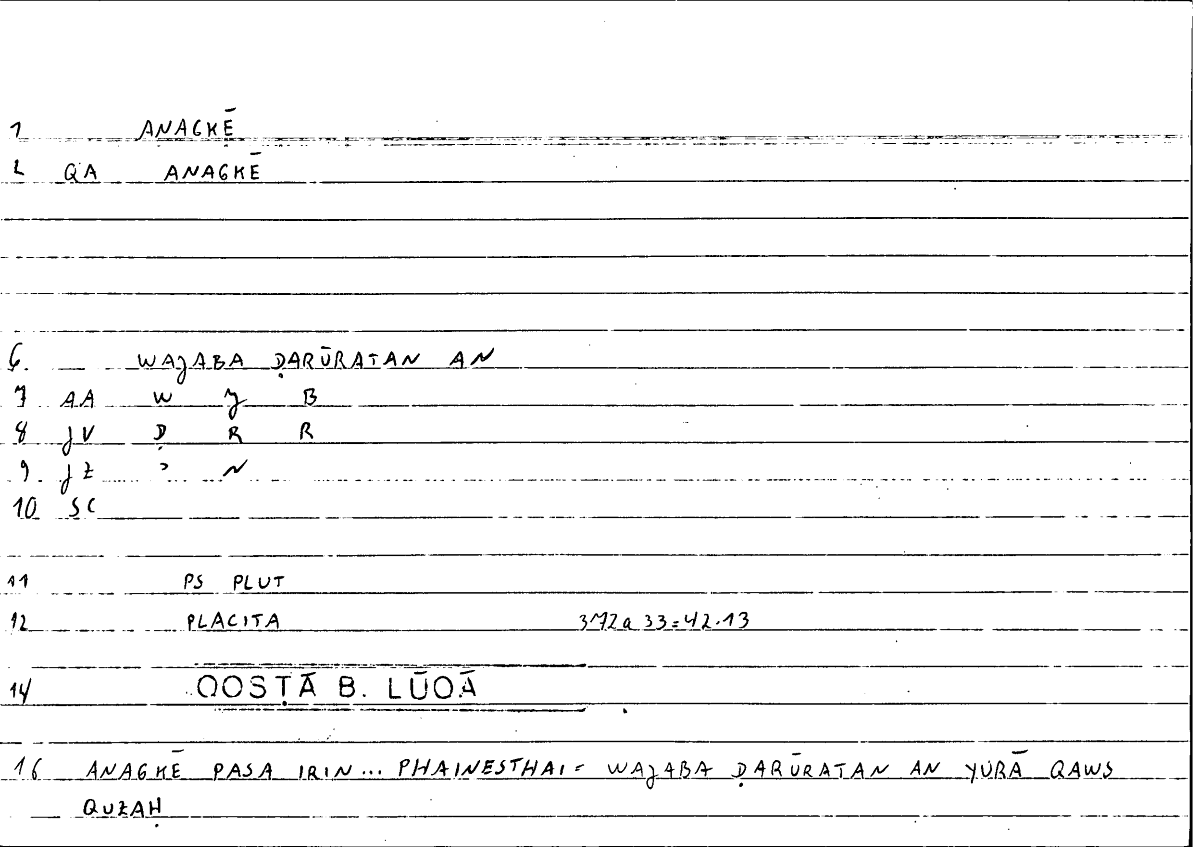 1 ANAGKĒ
2 QA ANAGKĒ
6. WAJABA ḌARŪRATAN AN
7 AA W J B
8 JV Ḍ R R
9 JZ ʾ N
10 SC
11 PS PLUT
12 PLACITA 372a 33=42.13
14 QOSṬĀ B. LŪQĀ
16 ANAGKĒ PASA IRIN... PHAINESTHAI = WAJABA ḌARŪRATAN AN YURĀ QAWS
QUZAḤ